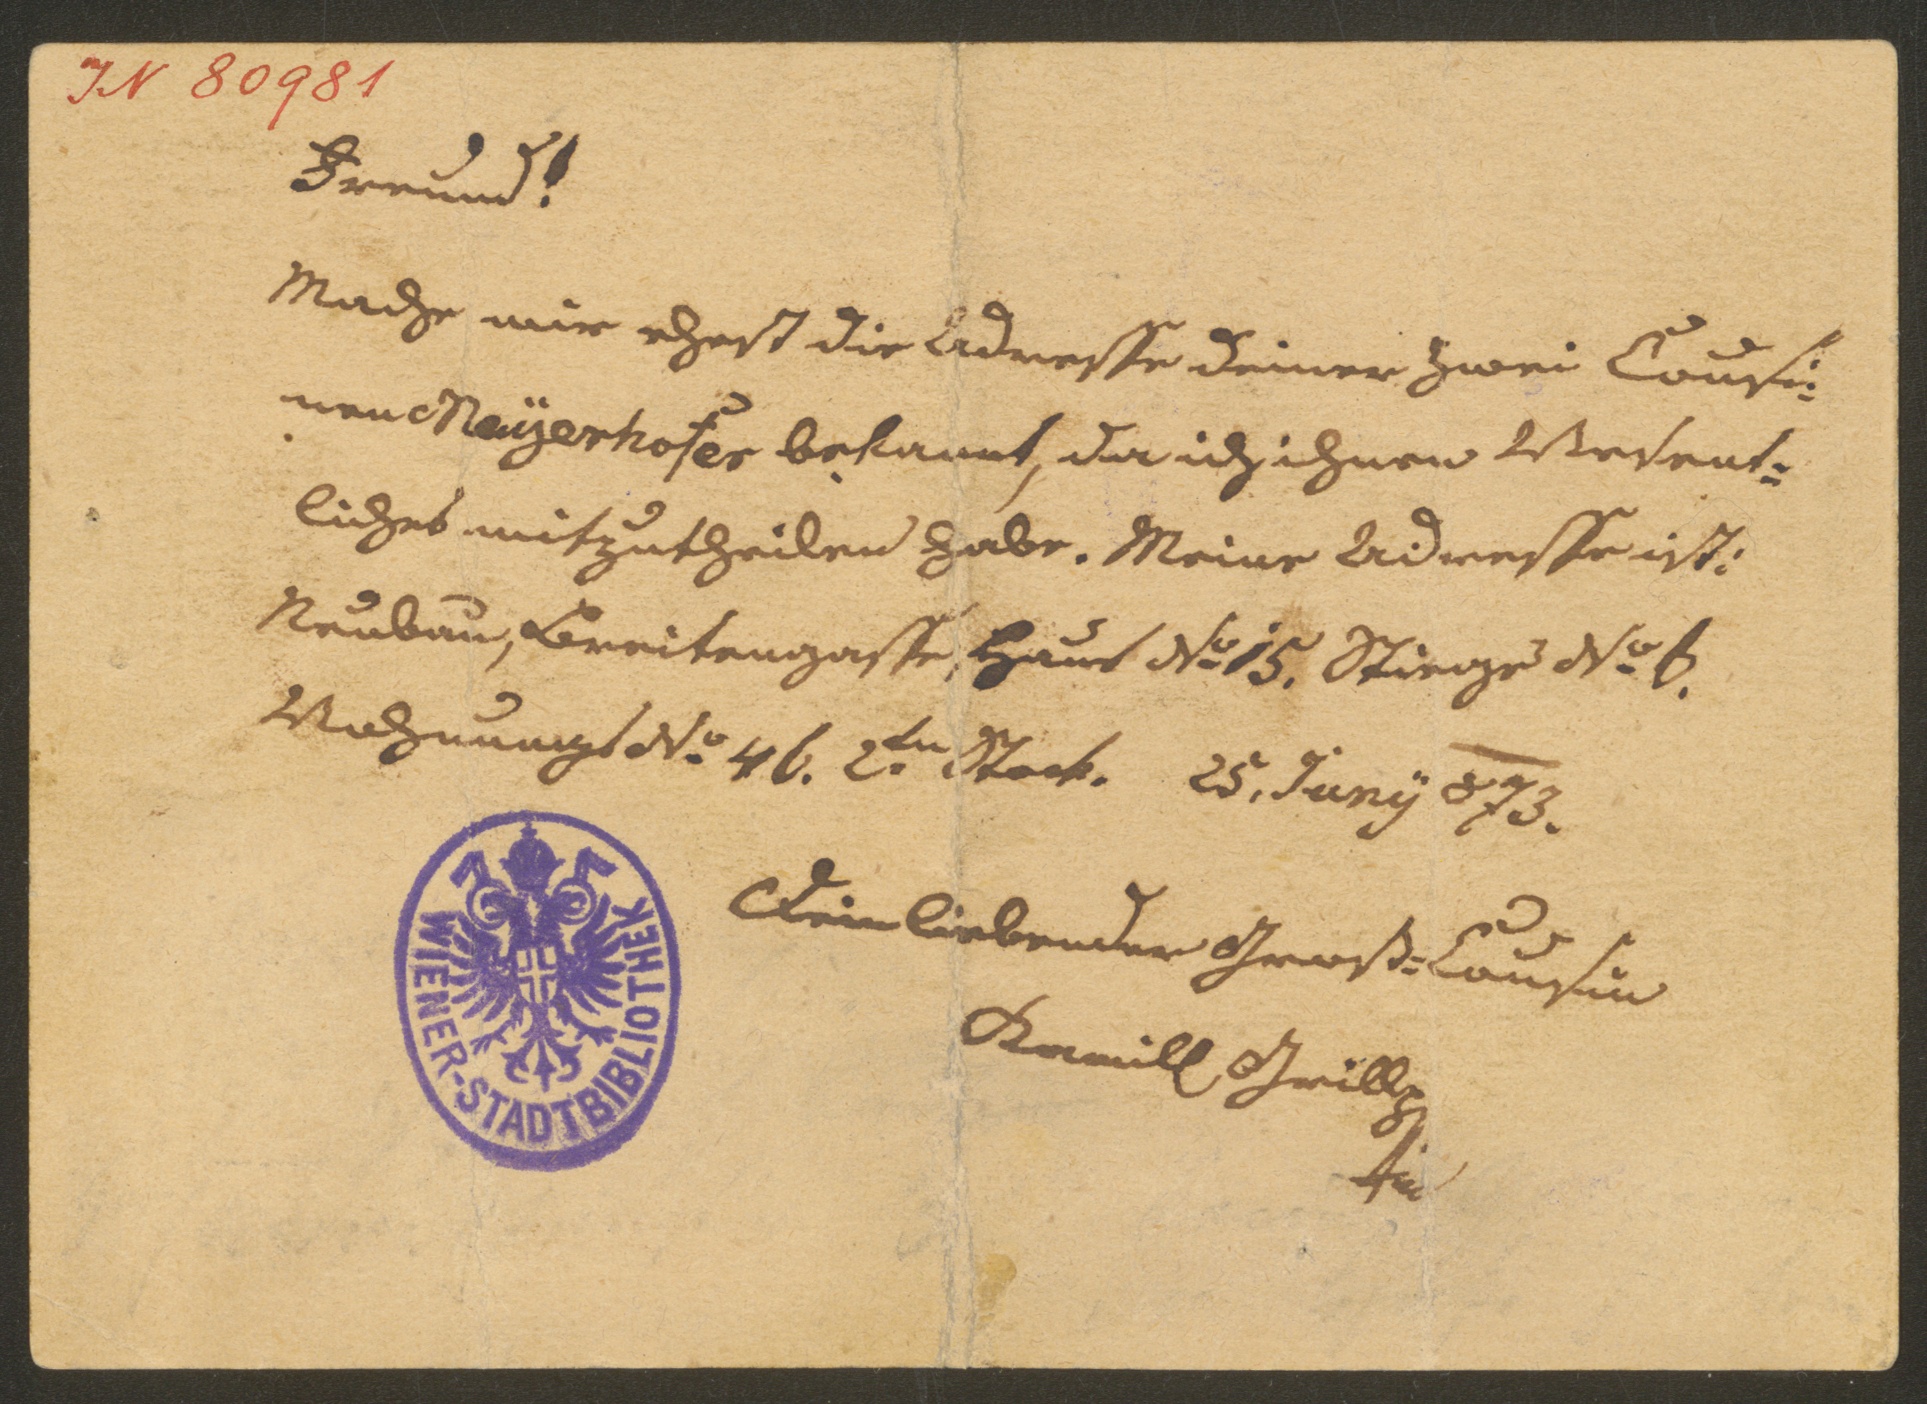 IN 80981
Freund!
Mache mir ehest die Adresse deiner zwei Cousi=
nen Mayerhofer bekannt, da ich ihnen Wesent=
liches mitzutheilen habe. Meine Adresse ist:
Neubau, Breitengasse, Haus No 15. Stiege No 6.
Wohnungs No 46. 2ten Stock. 25. Juny 873.
Dein liebender Groß=Cousin
Kamill Grillp
WIENER-STADTBIBLIOTHEK